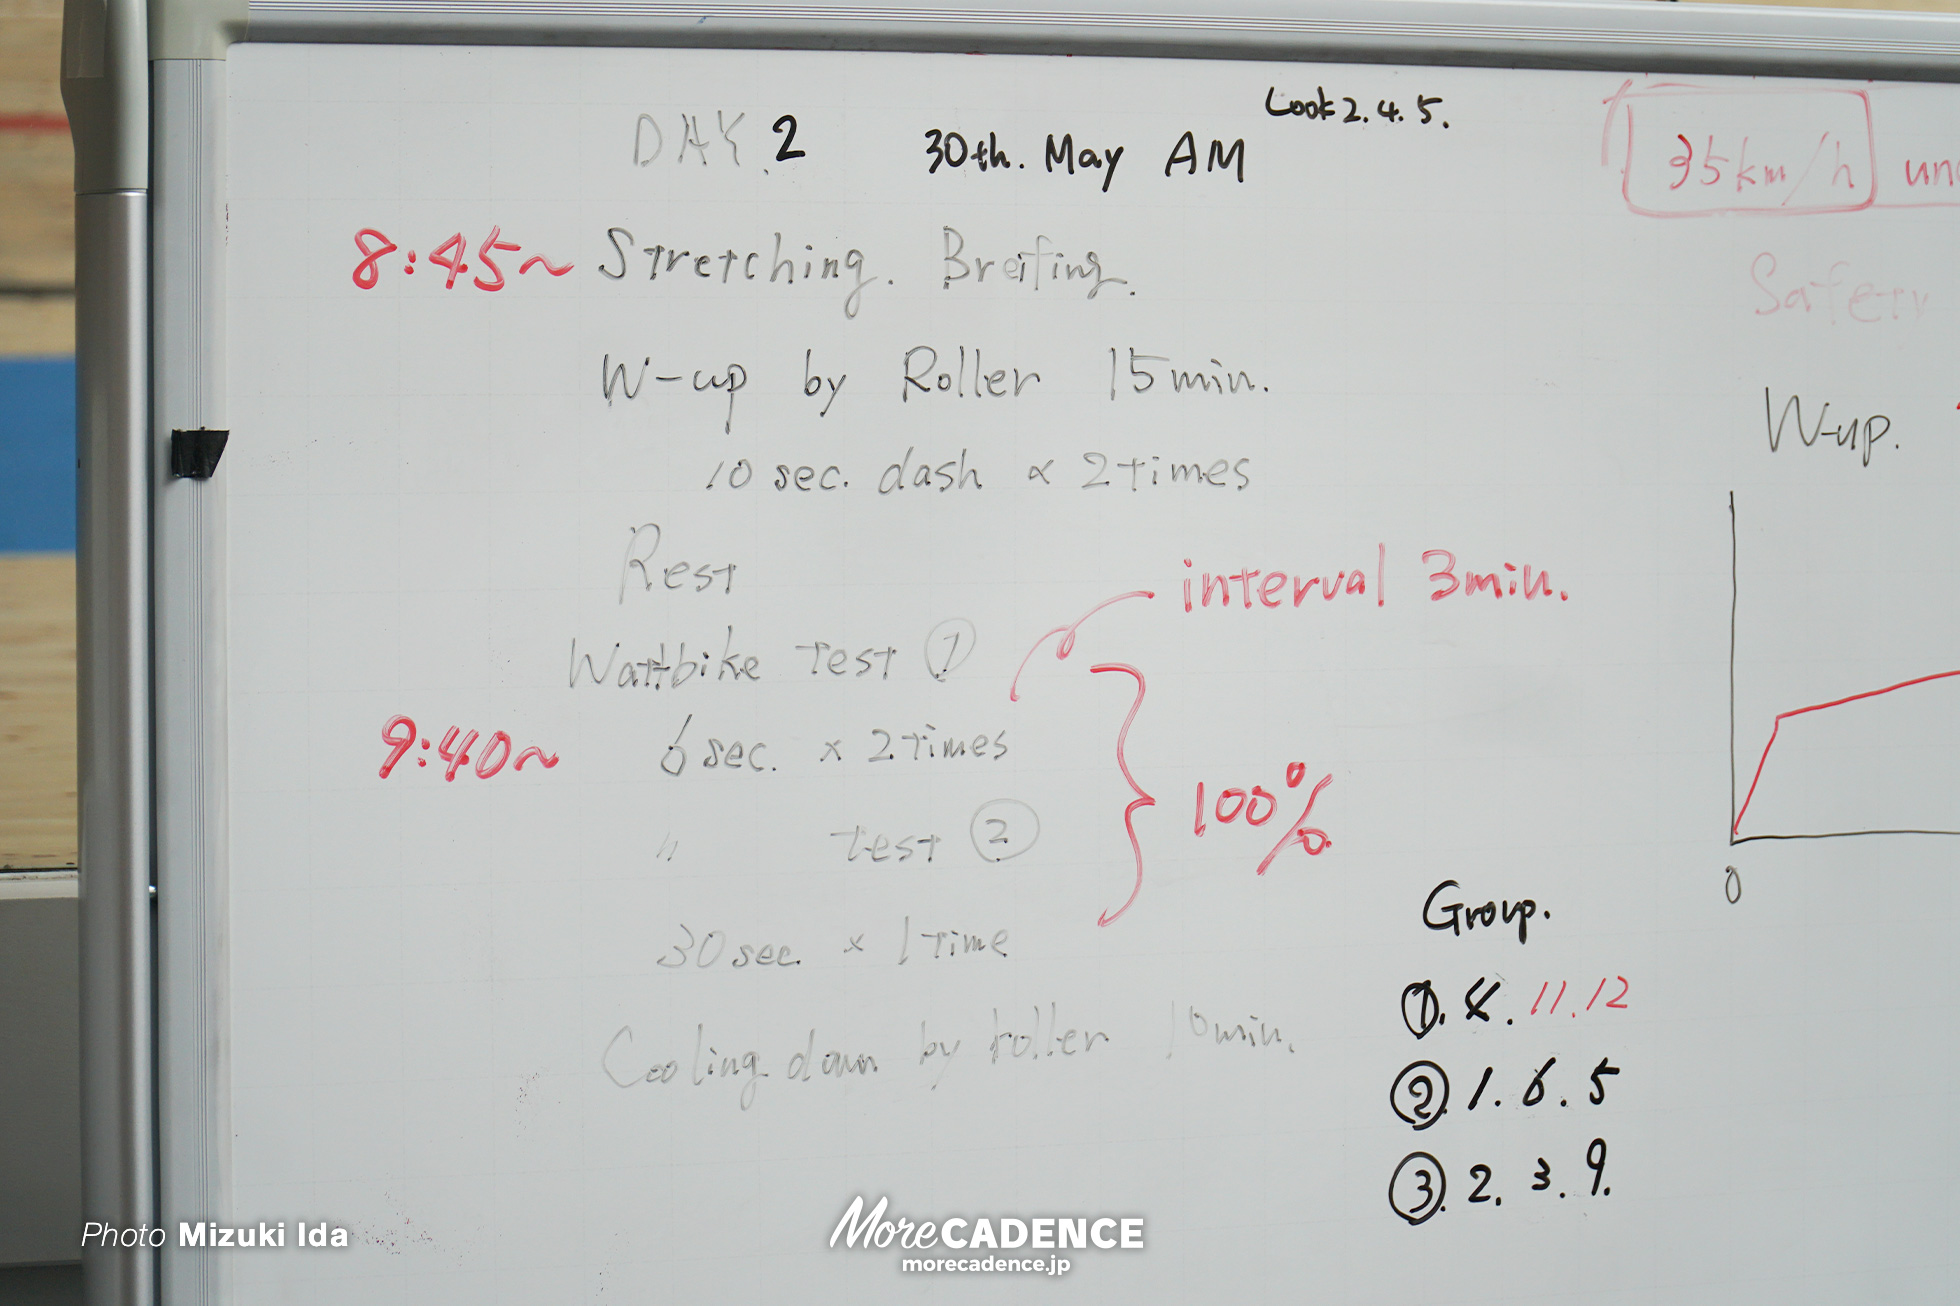 Look 2. 4. 5.
DAY 2 30th. May AM
8:45~ Stretching. Breifing.
W-up by Roller 15min.
10 sec. dash × 2 times
Rest
interval 3min.
Wattbike Test ①
9:40~ 6 sec. × 2 times
100%
〃 Test ②
30 sec. × 1 time
Cooling down by roller 10min.
Group.
①. 4. 11. 12
②. 1. 6. 5
③. 2. 3. 9.
35km/h
Safety
W-up.
0
Photo Mizuki Ida
More CADENCE
morecadence.jp